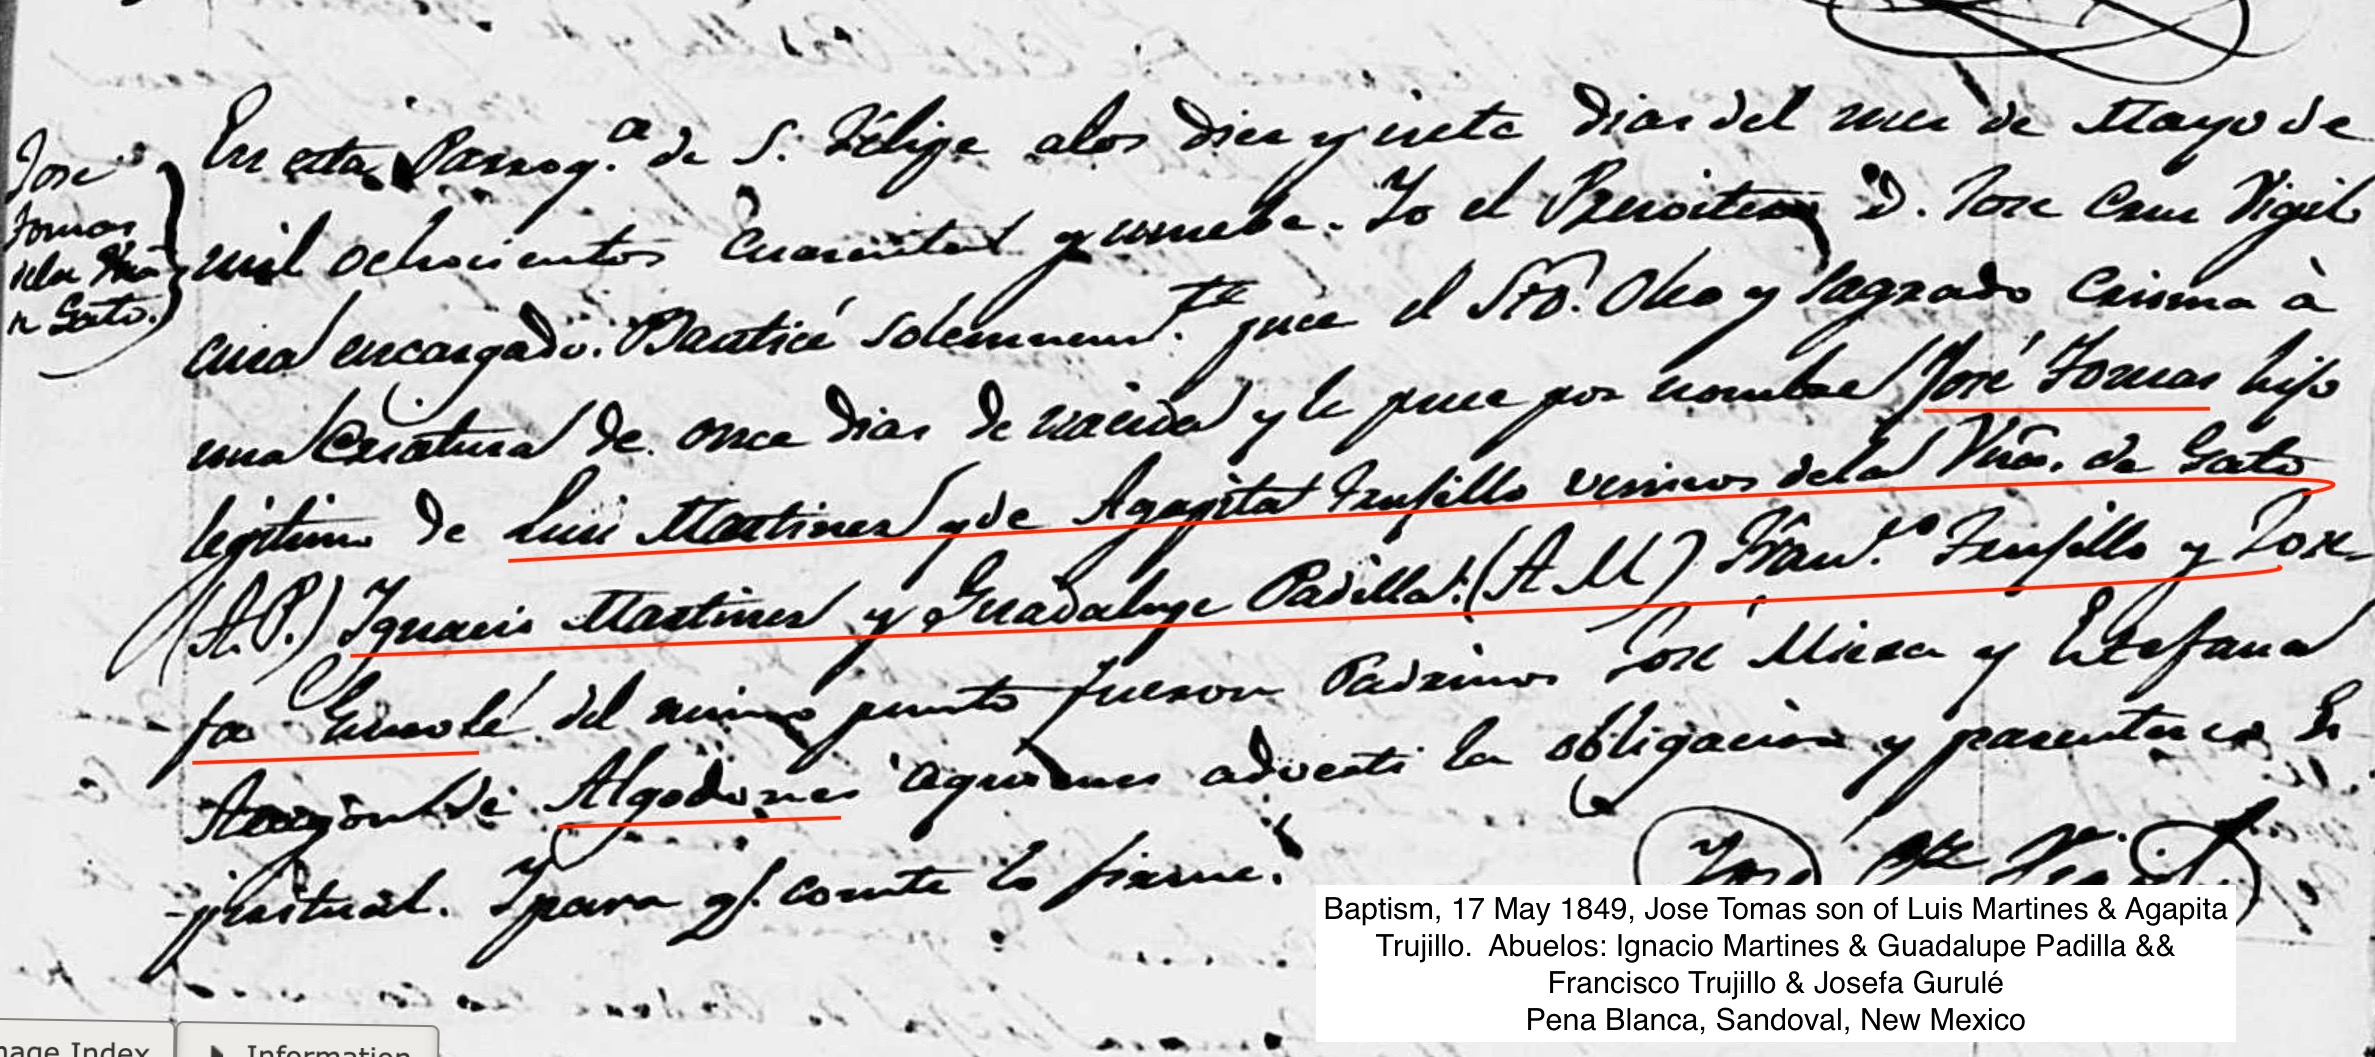 Jose
Tomas
dela Vña
n Gato.
En esta Parroq.a de S. Felipe alos diez y siete dias del mes de Mayo de
mil ochocientos cuarenta y nuebe. Yo el Presvitero D. Jose Cruz Vigil
cura encargado. Bauticé solemnem.te puce el Sto. Oleo y Sagrado Crisma à
una Criatura de once dias de nacida y le puce por nombre José Tomas hijo
legitimo de Luis Martines y de Agapita Trujillo vecinos dela Vña. de Gato
(A.P.) Ignacio Martines y Guadalupe Padilla: (A M) Fran.co Trujillo y Jose-
fa Gurulé del mismo punto fueron Padrinos José Miera y Estefana
de Algodones aquienes adverti la obligacion y parentesco Es
-piritual. Y para q. conste lo firme.
Jose
Baptism, 17 May 1849, Jose Tomas son of Luis Martines & Agapita
Trujillo. Abuelos: Ignacio Martines & Guadalupe Padilla &&
Francisco Trujillo & Josefa Gurulé
Pena Blanca, Sandoval, New Mexico
mage Index
Information